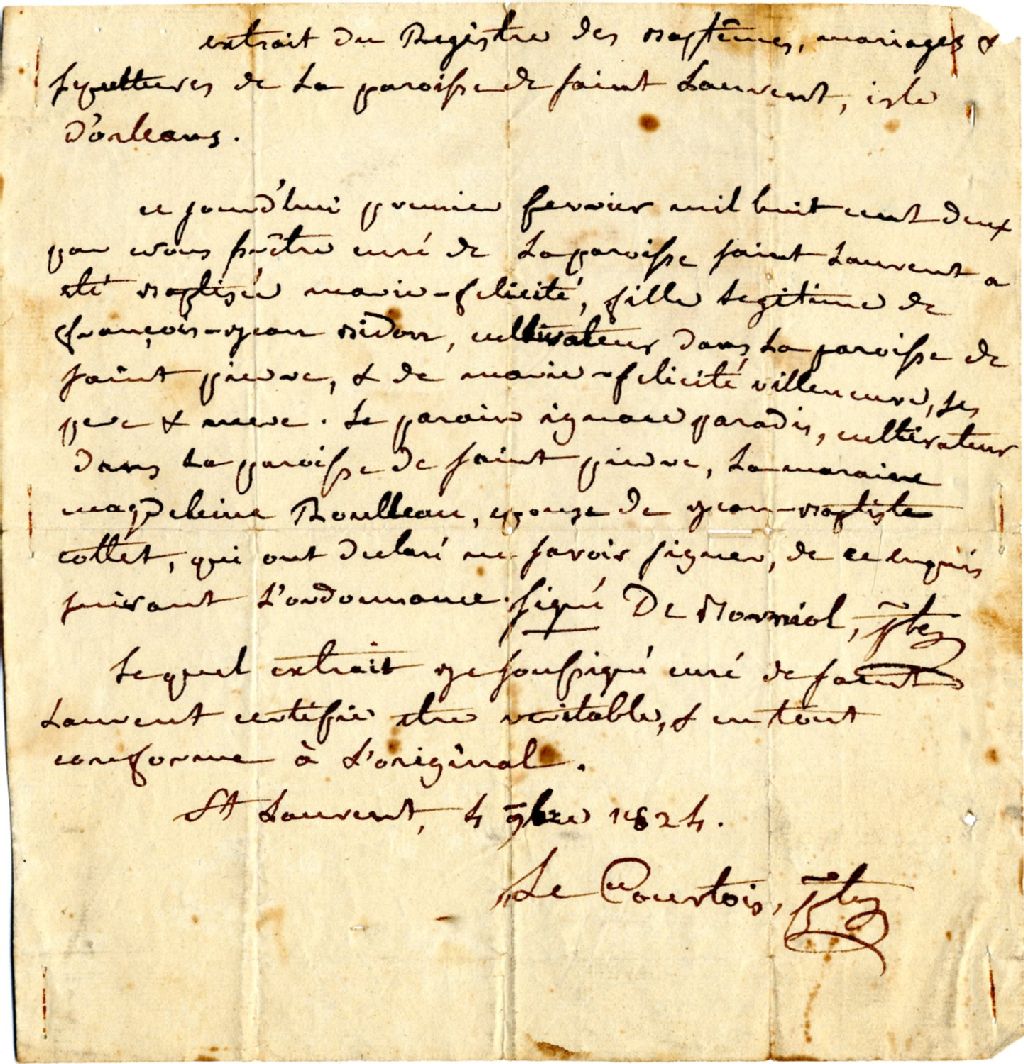 extrait du Registre des Baptêmes, mariages &
sepultures de La paroisse de saint Laurent, isle
d'orleans.
ce jourd'hui premier fevrier mil huit cent deux
par nous prêtre curé de La paroisse saint Laurent a
eté Baptisée marie-felicité, fille Legitime de
françois-jean Bidon, cultivateur dans La paroisse de
saint pierre, & de marie-felicité villeneuve, ses
pere & mere. Le parain ignace paradis, cultivateur
dans La paroisse de saint pierre, La maraine
magdeleine Roulleau, epouse de jean-Baptiste
collet, qui ont declaré ne savoir signer, de ce enquis
suivant L'ordonnance. signé De Borniol, ptre
Lequel extrait je soussigné curé de saint
Laurent certifie etre veritable, & en tout
conforme à L'original.
St Laurent, 4 9bre 1824.
Le Courtois, ptre